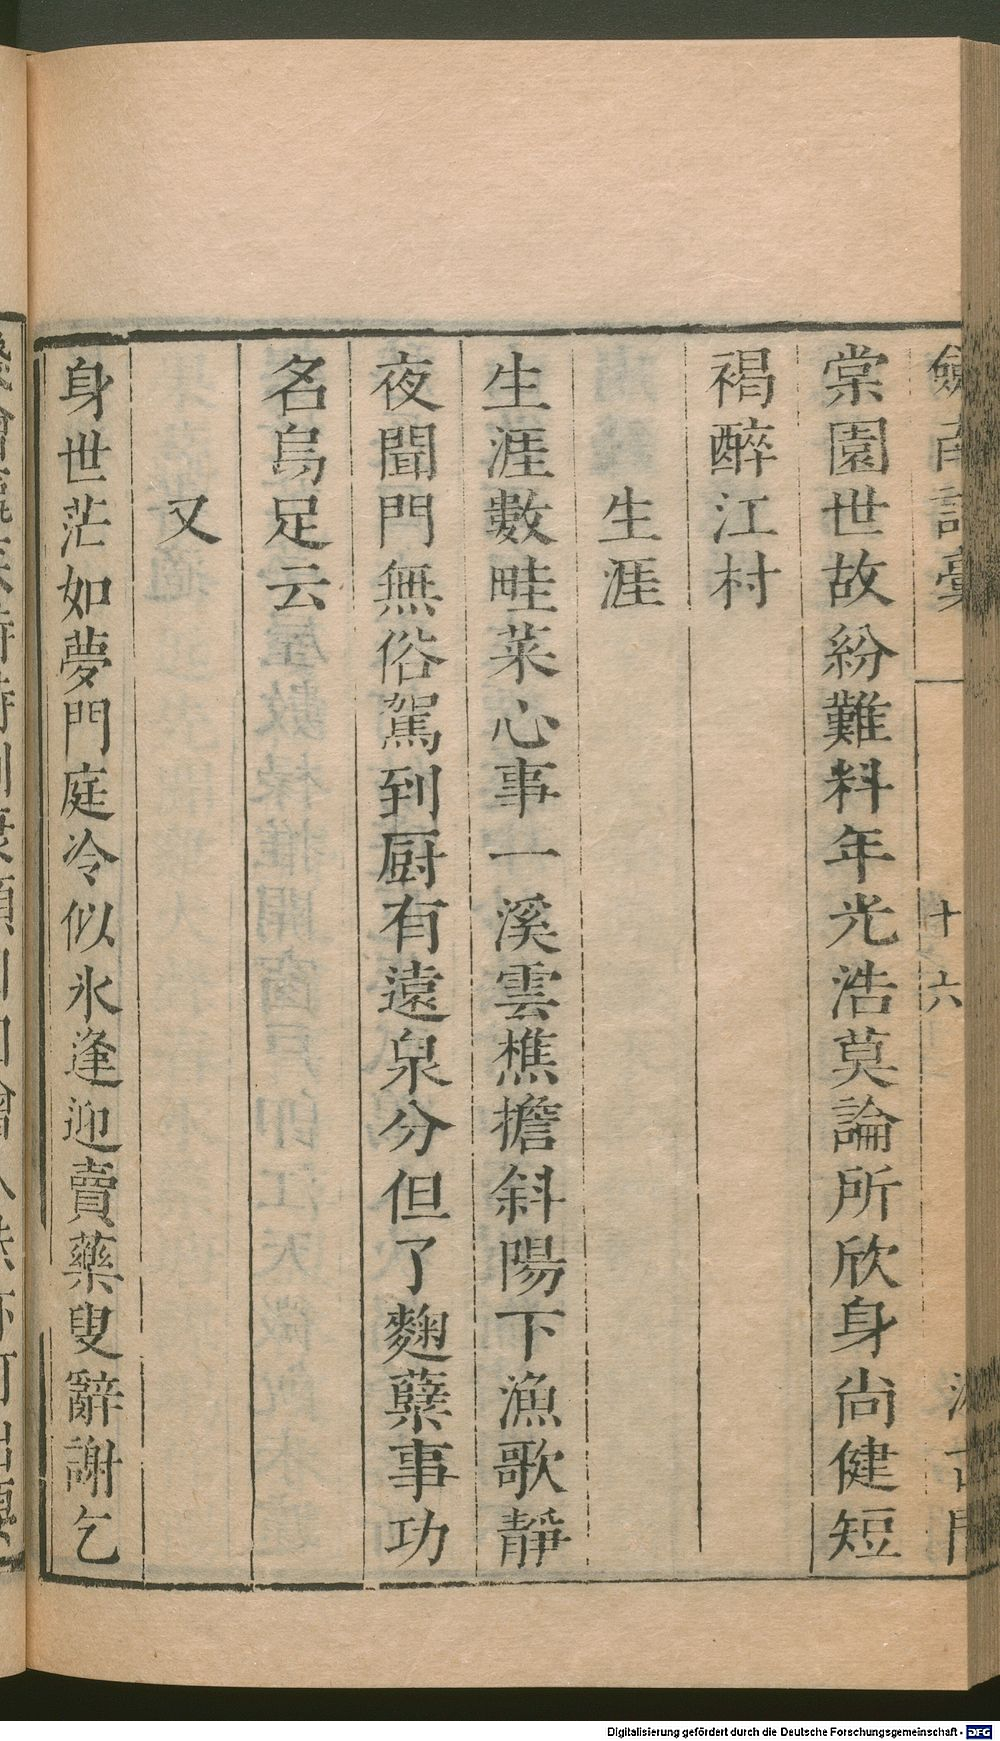 棠園世故紛難料年光浩莫論所欣身尚健短
褐醉江村
生涯
生涯數畦菜心事一溪雲樵擔斜陽下漁歌靜
夜聞門無俗駕到厨有遠泉分但了麴糵事功
名烏足云
又
身世茫如夢門庭冷似氷逢迎賣藥叟辭謝乞
十六
Digitalisierung gefördert durch die Deutsche Forschungsgemeinschaft - DFG